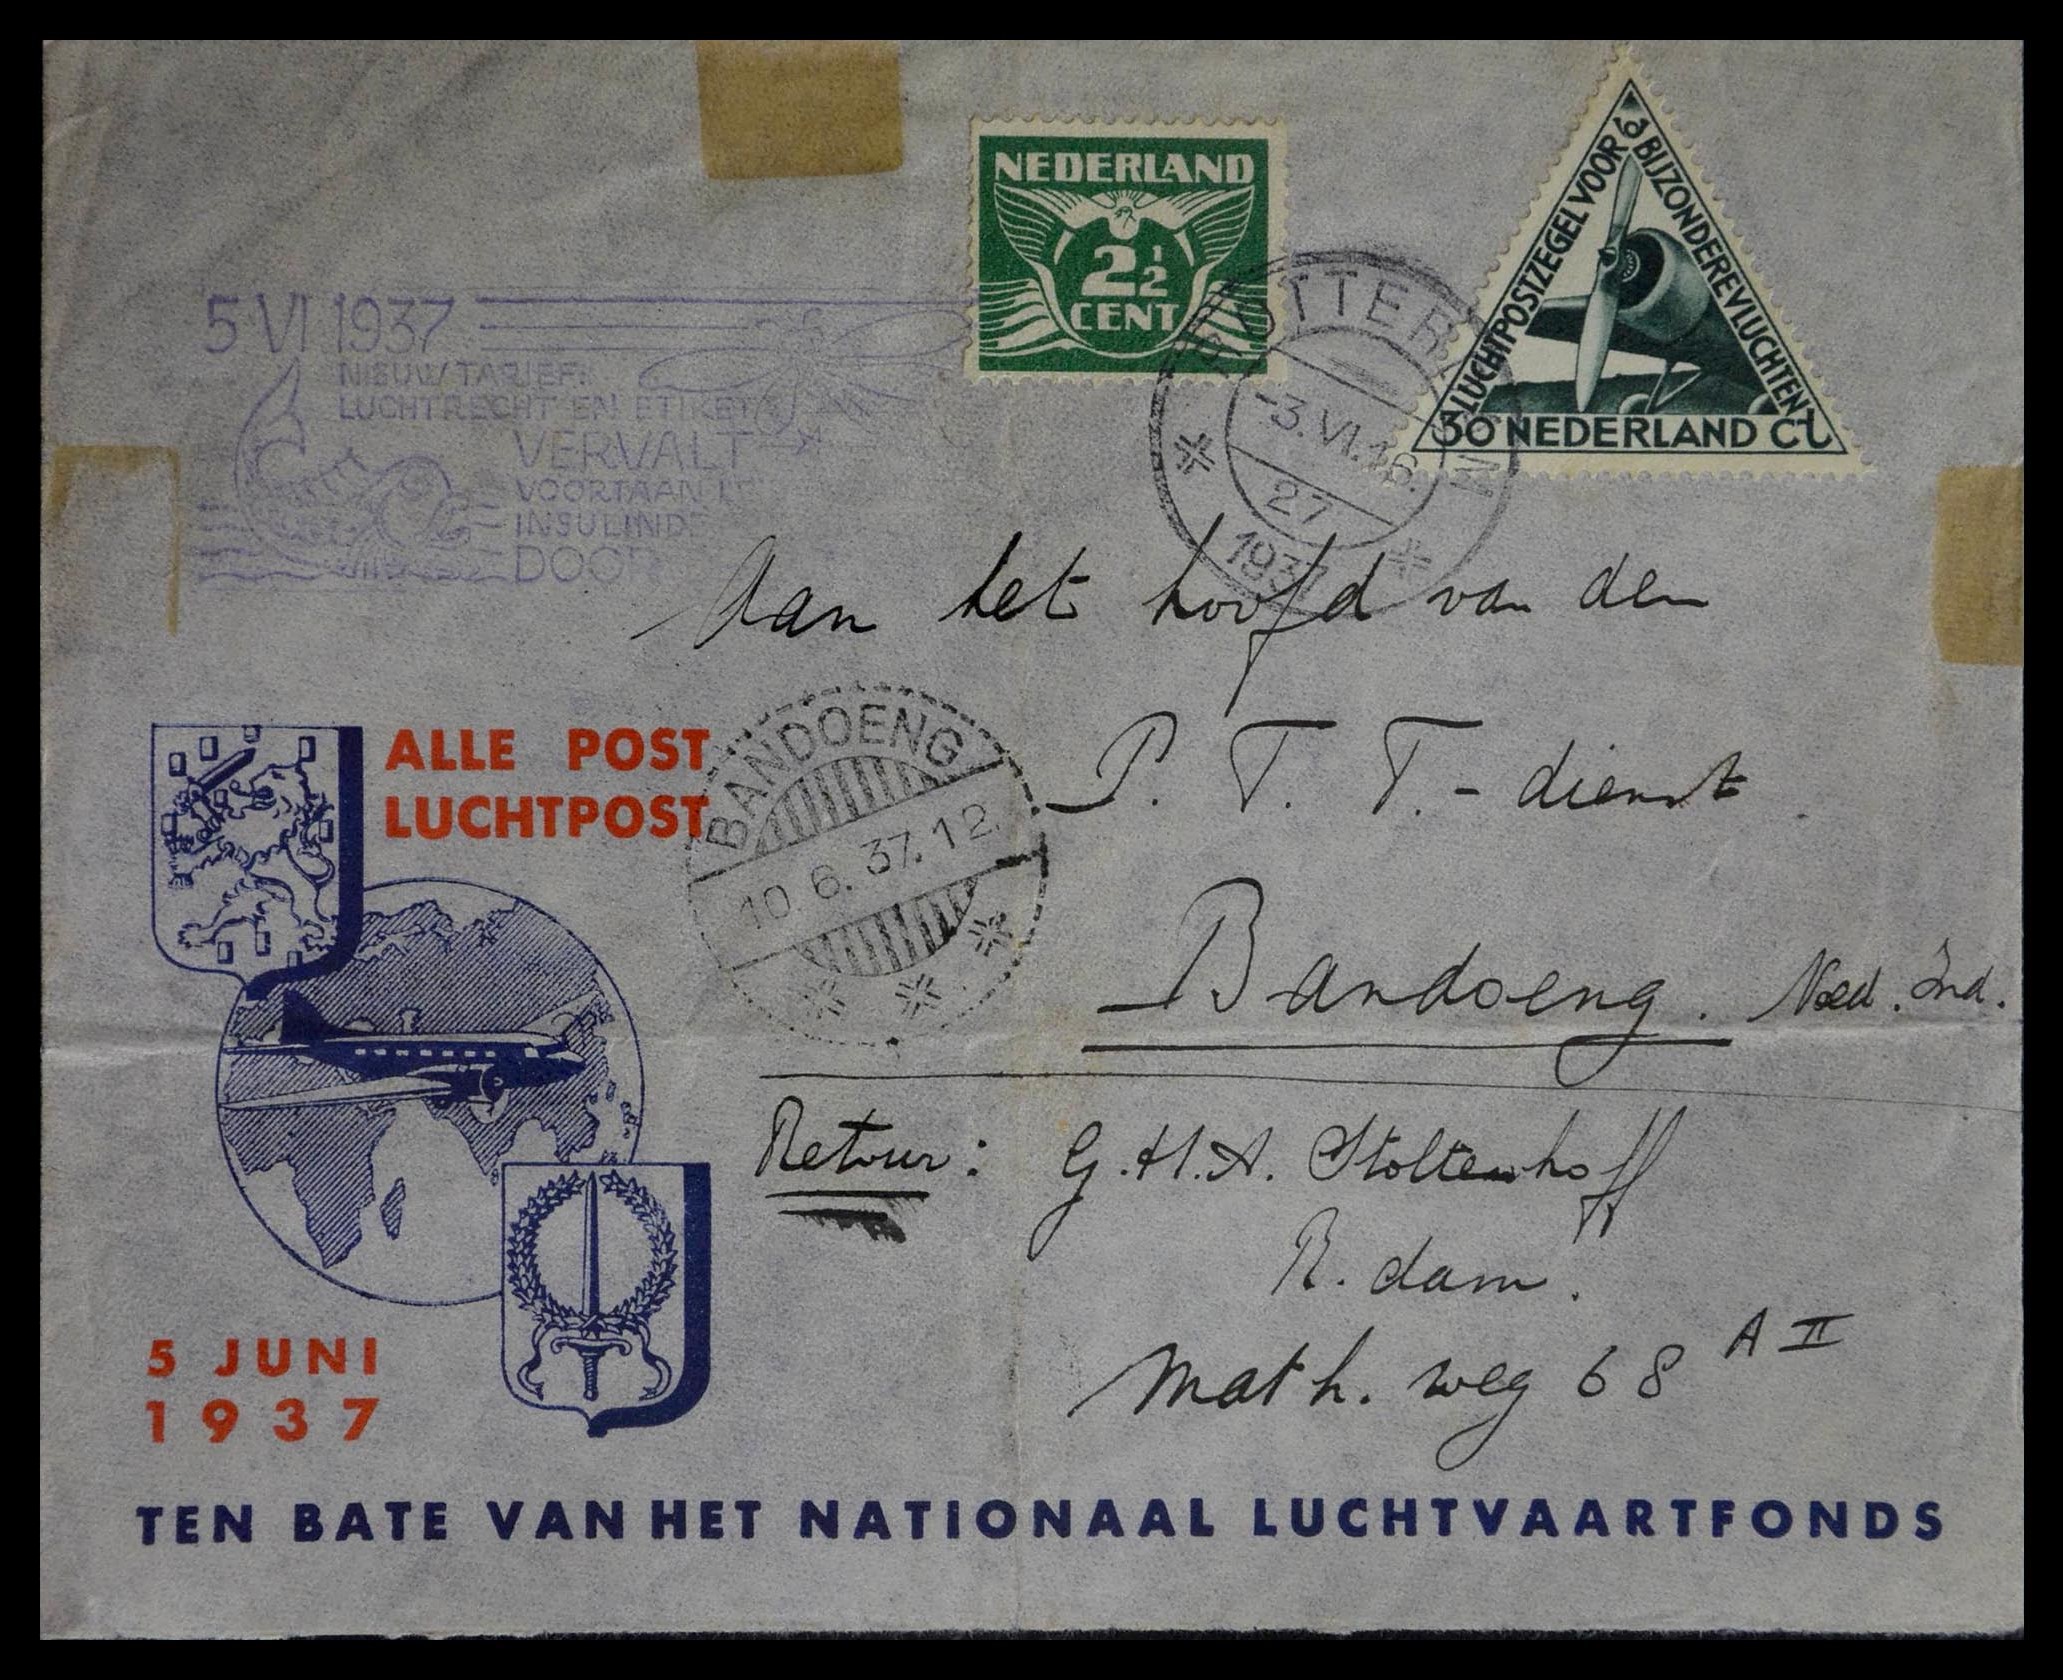 NEDERLAND
2½
CENT
LUCHTPOSTZEGEL VOOR BIJZONDERE VLUCHTEN
30 NEDERLAND Ct
5 VI 1937
NIEUW TARIEF:
LUCHTRECHT EN ETIKET
VERVALT
VOORTAAN
INSULINDE
DOOR
ROTTER
-3.VI.16.
27
1937
Aan het hoofd van den
P. T. T. - dienst
Bandoeng. Ned. Ind.
ALLE POST
LUCHTPOST
BANDOENG
10.6.37.12.
Retour: G.H.A. Stoltenhoff
R.dam.
Math. weg 68 A II
5 JUNI
1937
TEN BATE VAN HET NATIONAAL LUCHTVAARTFONDS